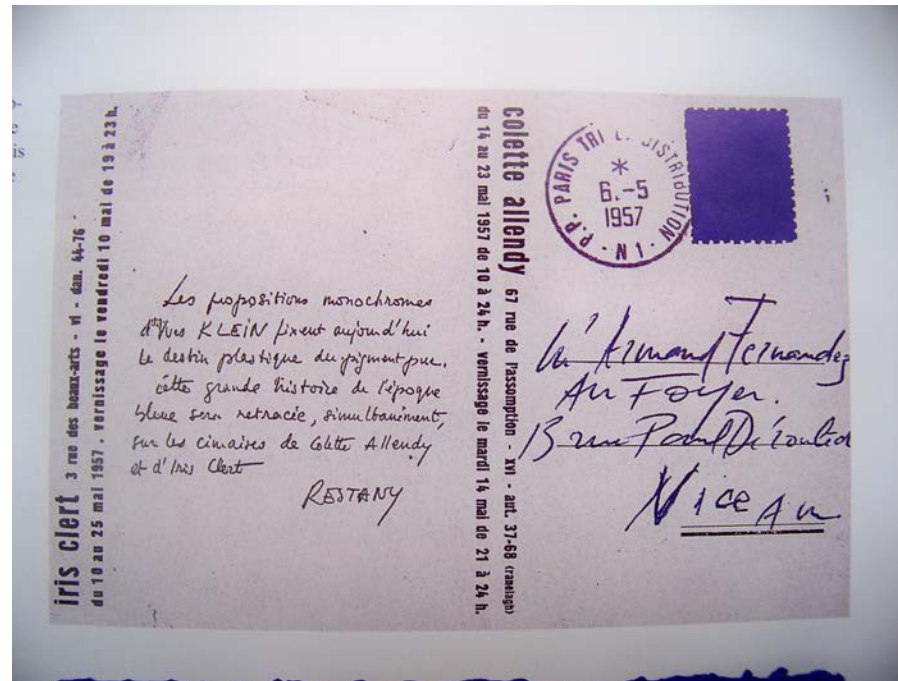 iris clert 3 rue des beaux-arts - vi - dan. 44-76
du 10 au 25 mai 1957 . vernissage le vendredi 10 mai de 19 à 23 h.
Les propositions monochromes
d'Yves KLEIN fixent aujourd'hui
le destin plastique du pigment pur.
cette grande histoire de l'époque
bleue sera retracée, simultanément,
sur les cimaises de Colette Allendy
et d'Iris Clert
RESTANY
colette allendy 67 rue de l'assomption - xvi - aut. 37-68 (ranelagh)
du 14 au 23 mai 1957 de 10 à 24 h. - vernissage le mardi 14 mai de 21 à 24 h.
P.P. PARIS TRI DISTRIBUTION · N 1 ·
*
6.-5
1957
Armand Fernandez
Au Foyer.
13 rue Paul
Nice